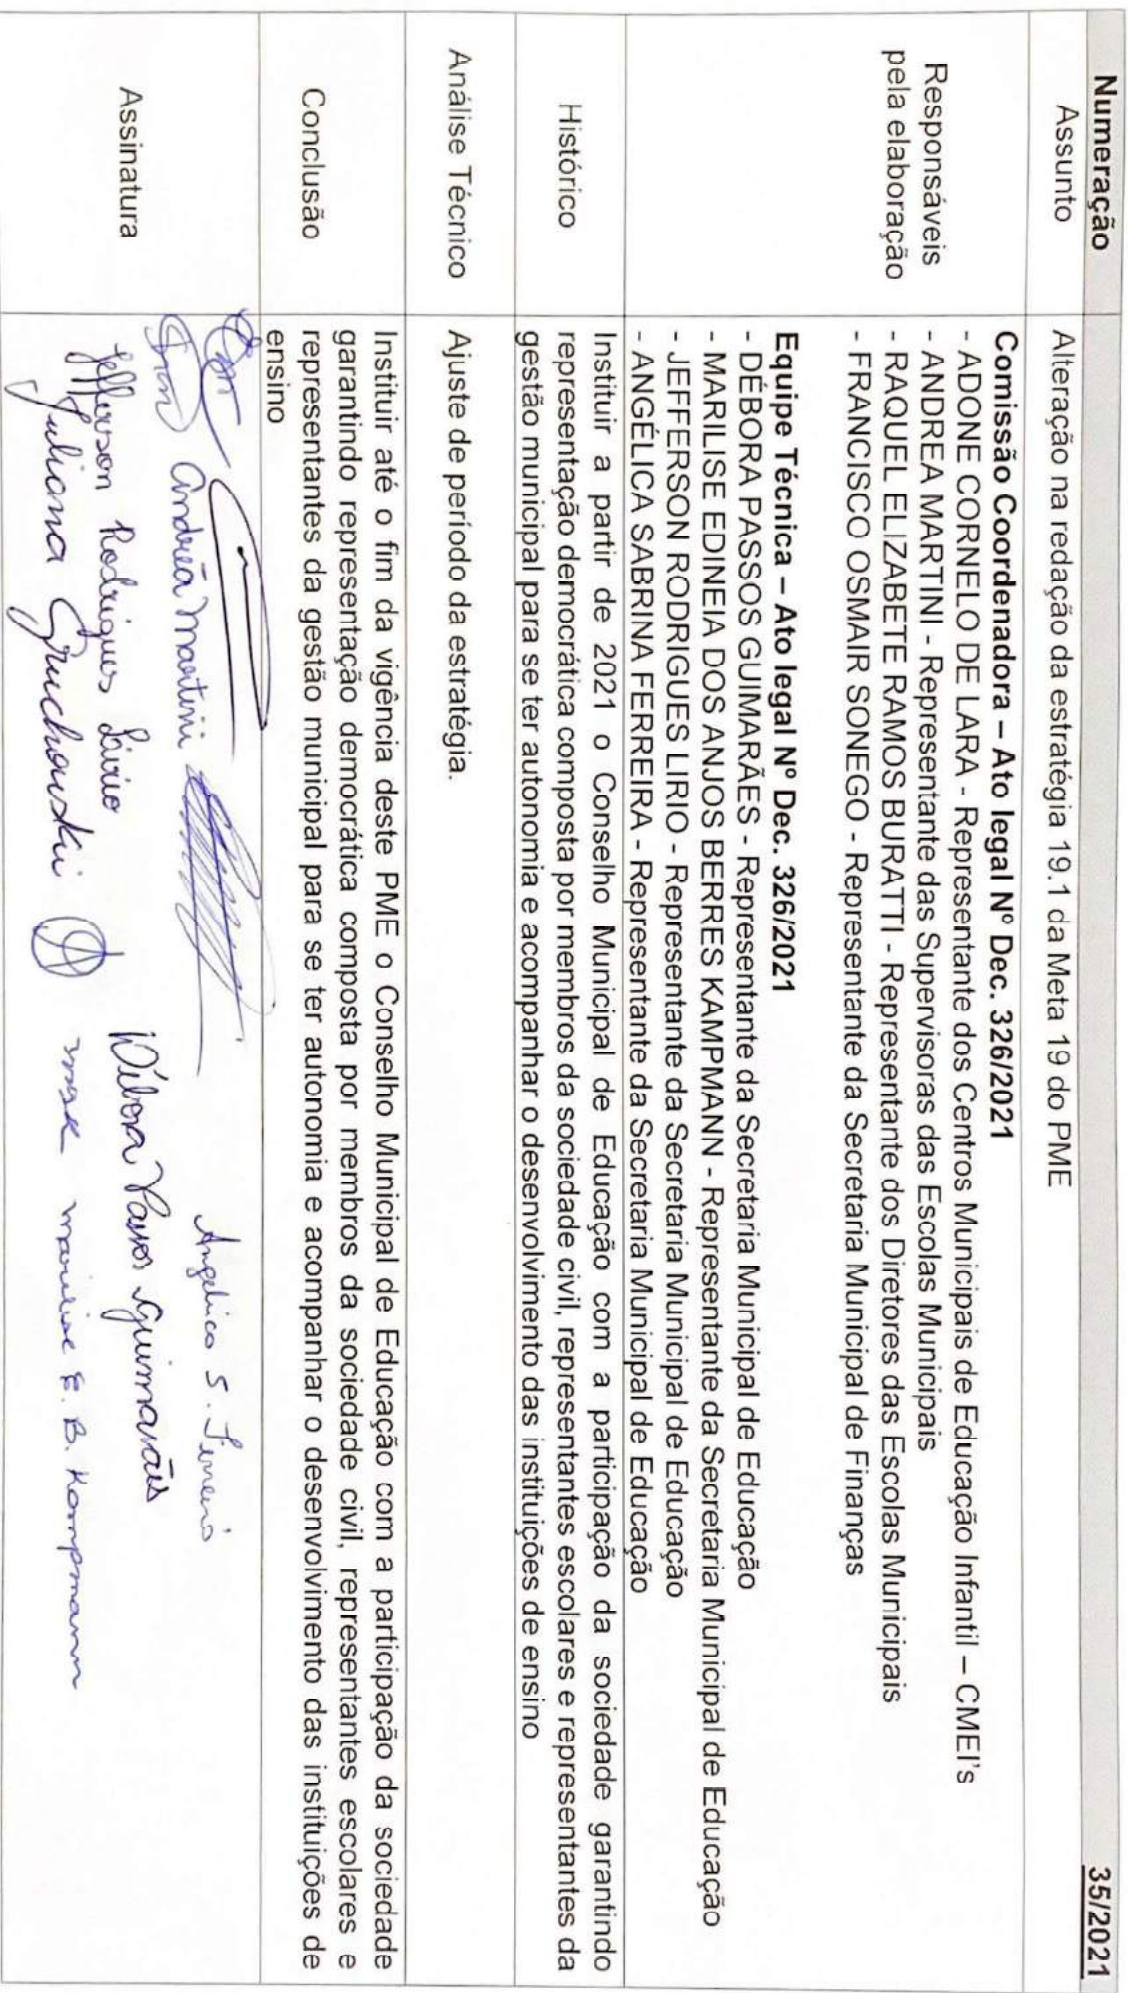 Numeração 35/2021
Assunto
Alteração na redação da estratégia 19.1 da Meta 19 do PME
Responsáveis
pela elaboração
Comissão Coordenadora – Ato legal Nº Dec. 326/2021
- ADONE CORNELO DE LARA - Representante dos Centros Municipais de Educação Infantil – CMEI's
- ANDREA MARTINI - Representante das Supervisoras das Escolas Municipais
- RAQUEL ELIZABETE RAMOS BURATTI - Representante dos Diretores das Escolas Municipais
- FRANCISCO OSMAIR SONEGO - Representante da Secretaria Municipal de Finanças
Equipe Técnica – Ato legal Nº Dec. 326/2021
- DÉBORA PASSOS GUIMARÃES - Representante da Secretaria Municipal de Educação
- MARILISE EDINEIA DOS ANJOS BERRES KAMPMANN - Representante da Secretaria Municipal de Educação
- JEFFERSON RODRIGUES LIRIO - Representante da Secretaria Municipal de Educação
- ANGÉLICA SABRINA FERREIRA - Representante da Secretaria Municipal de Educação
Histórico
Instituir a partir de 2021 o Conselho Municipal de Educação com a participação da sociedade garantindo
representação democrática composta por membros da sociedade civil, representantes escolares e representantes da
gestão municipal para se ter autonomia e acompanhar o desenvolvimento das instituições de ensino
Análise Técnico
Ajuste de período da estratégia.
Conclusão
Instituir até o fim da vigência deste PME o Conselho Municipal de Educação com a participação da sociedade
garantindo representação democrática composta por membros da sociedade civil, representantes escolares e
representantes da gestão municipal para se ter autonomia e acompanhar o desenvolvimento das instituições de
ensino
Assinatura
Angélica S. Ferreira
Andréa Martini
Débora Passos Guimarães
Jefferson Rodrigues Lirio
Marilise E. B. Kampmann
Juliana Gruchouski